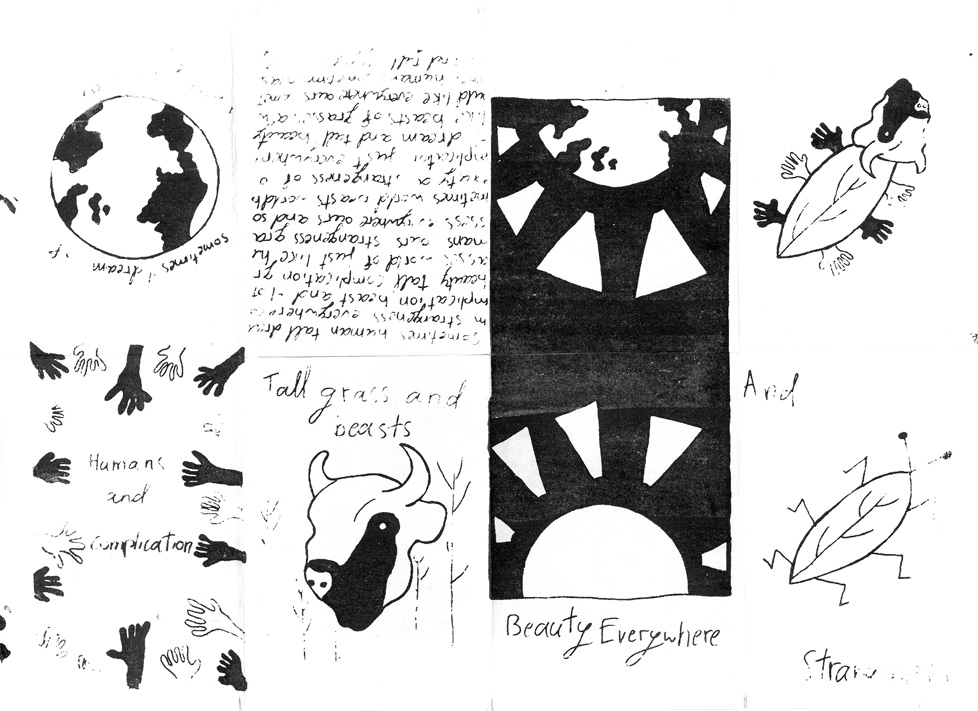 sometimes i dream of
Humans
and
complication
Sometimes human tall drea
m strangeness everywhere co
mplication beast and I
beauty tall complication gr
asses of world just like hu
mans ours strangeness gra
sses everywhere ours and so
metimes world beasts worlds
beauty a strangeness of
mplication just everywhere
dream and tall beauty
like beasts of grasses
uld like everywhere ours and
human sometimes
and tall
Tall grass and
beasts
Beauty Everywhere
And